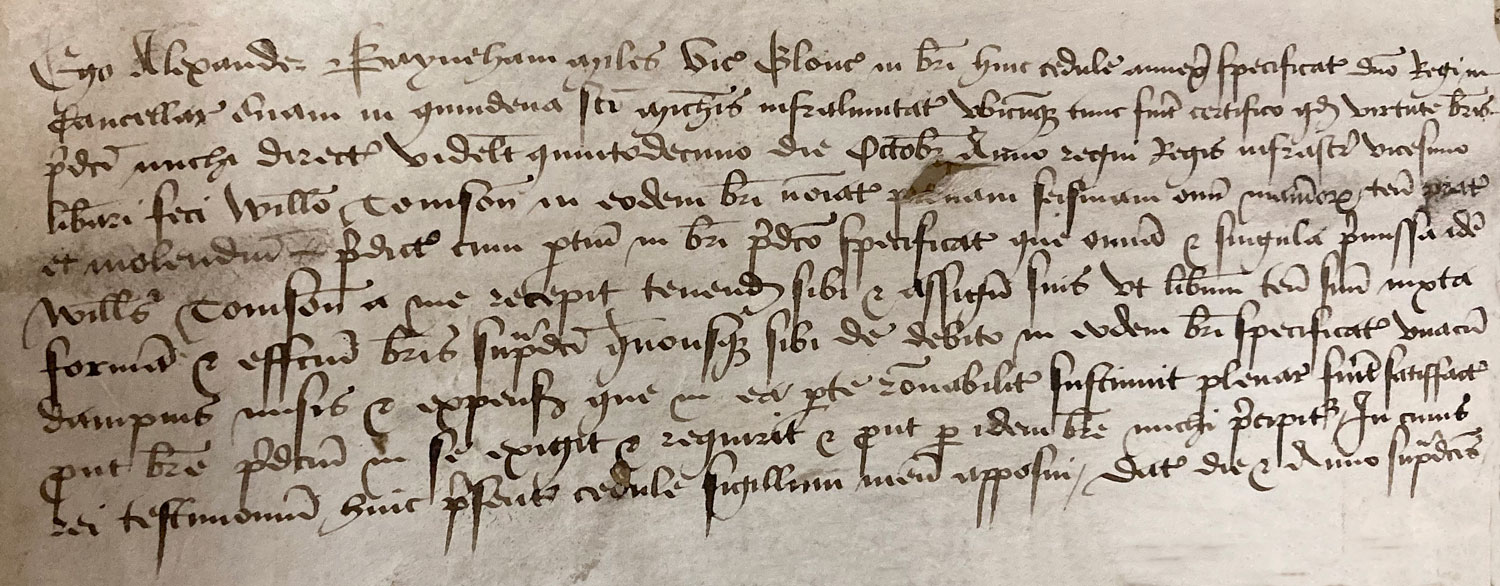 Ego Alexander Bayneham Miles Vic' Glouc' in br̄i huic cedule annex' specificat' dn̄o Regi in
Cancellar' suam in quindena sc̄i Mich̄is infralimitat' vbicumq3 tunc fu'it certifico qd' virtute br̄is
p'dc̄i michi direct' videl't quintodecimo die Octobr' Anno regni Regis infrascr' vicesimo
lib'ari feci Will'o Tomson̄ in eodem br̄i no'iat' plenam seisinam om̄i man'iorx, ten̄ prat'
et molendin̄ p'dict' cum p'tin̄ in br̄i p'dc̄o specificat' que om̄ia & singula p'missa idē
Will's Tomson̄ a me recepit tenend' sibi & assign̄ suis vt lib'um ten̄ suū iuxta
formā & effc̄um br̄is sup'dc̄i quousq3 sibi de debito in eodem br̄i specificat' vnacū
dampnis misis & expens' que in ea p'te ro'nabilit' sustinuit plenar' fu'it satisfact'
put br̄e p'dc̄um in se exigit & requirit & put p idem br̄e michi p'cipit', In cuius
rei testimoniū huic p'sent' cedule sigillum meū apposui, Dat' die & Anno sup'dc̄is